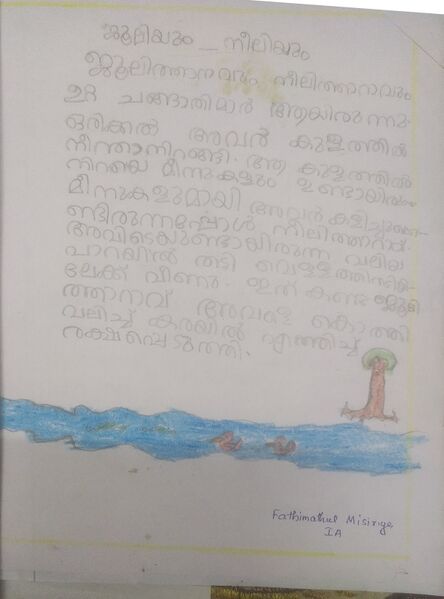 ജൂലിയും _ നീലിയും
ജൂലിത്താറാവും നീലിത്താറാവും
ഉറ്റ ചങ്ങാതിമാർ ആയിരുന്നു.
ഒരിക്കൽ അവർ കുളത്തിൽ
നീന്താനിറങ്ങി. ആ കുളത്തിൽ
നിറയെ മീനുകളും ഉണ്ടായിരുന്നു
മീനുകളുമായി അവർ കളിച്ചുകൊ-
ണ്ടിരുന്നപ്പോൾ നീലിത്താറാവ്
അവിടെയുണ്ടായിരുന്ന വലിയ
പാറയിൽ തട്ടി വെള്ളത്തിനടി-
ലേക്ക് വീണു. ഇത് കണ്ട ജൂലി
ത്താറാവ് അവളെ കൊത്തി
വലിച്ച് കരയിൽ എത്തിച്ച്
രക്ഷപ്പെടുത്തി.
Fathimathul Misiriya
IA